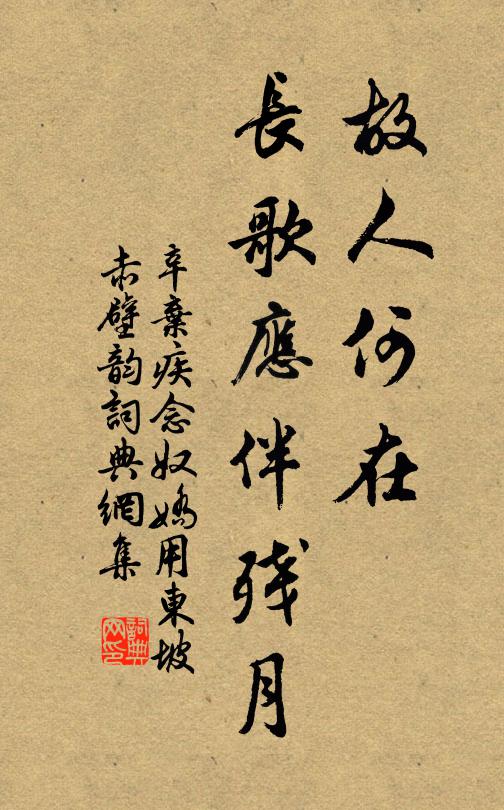 故人何在
長歌應伴残月
辛棄疾念奴嬌用東坡
赤壁韵詞典網集
詞典网印